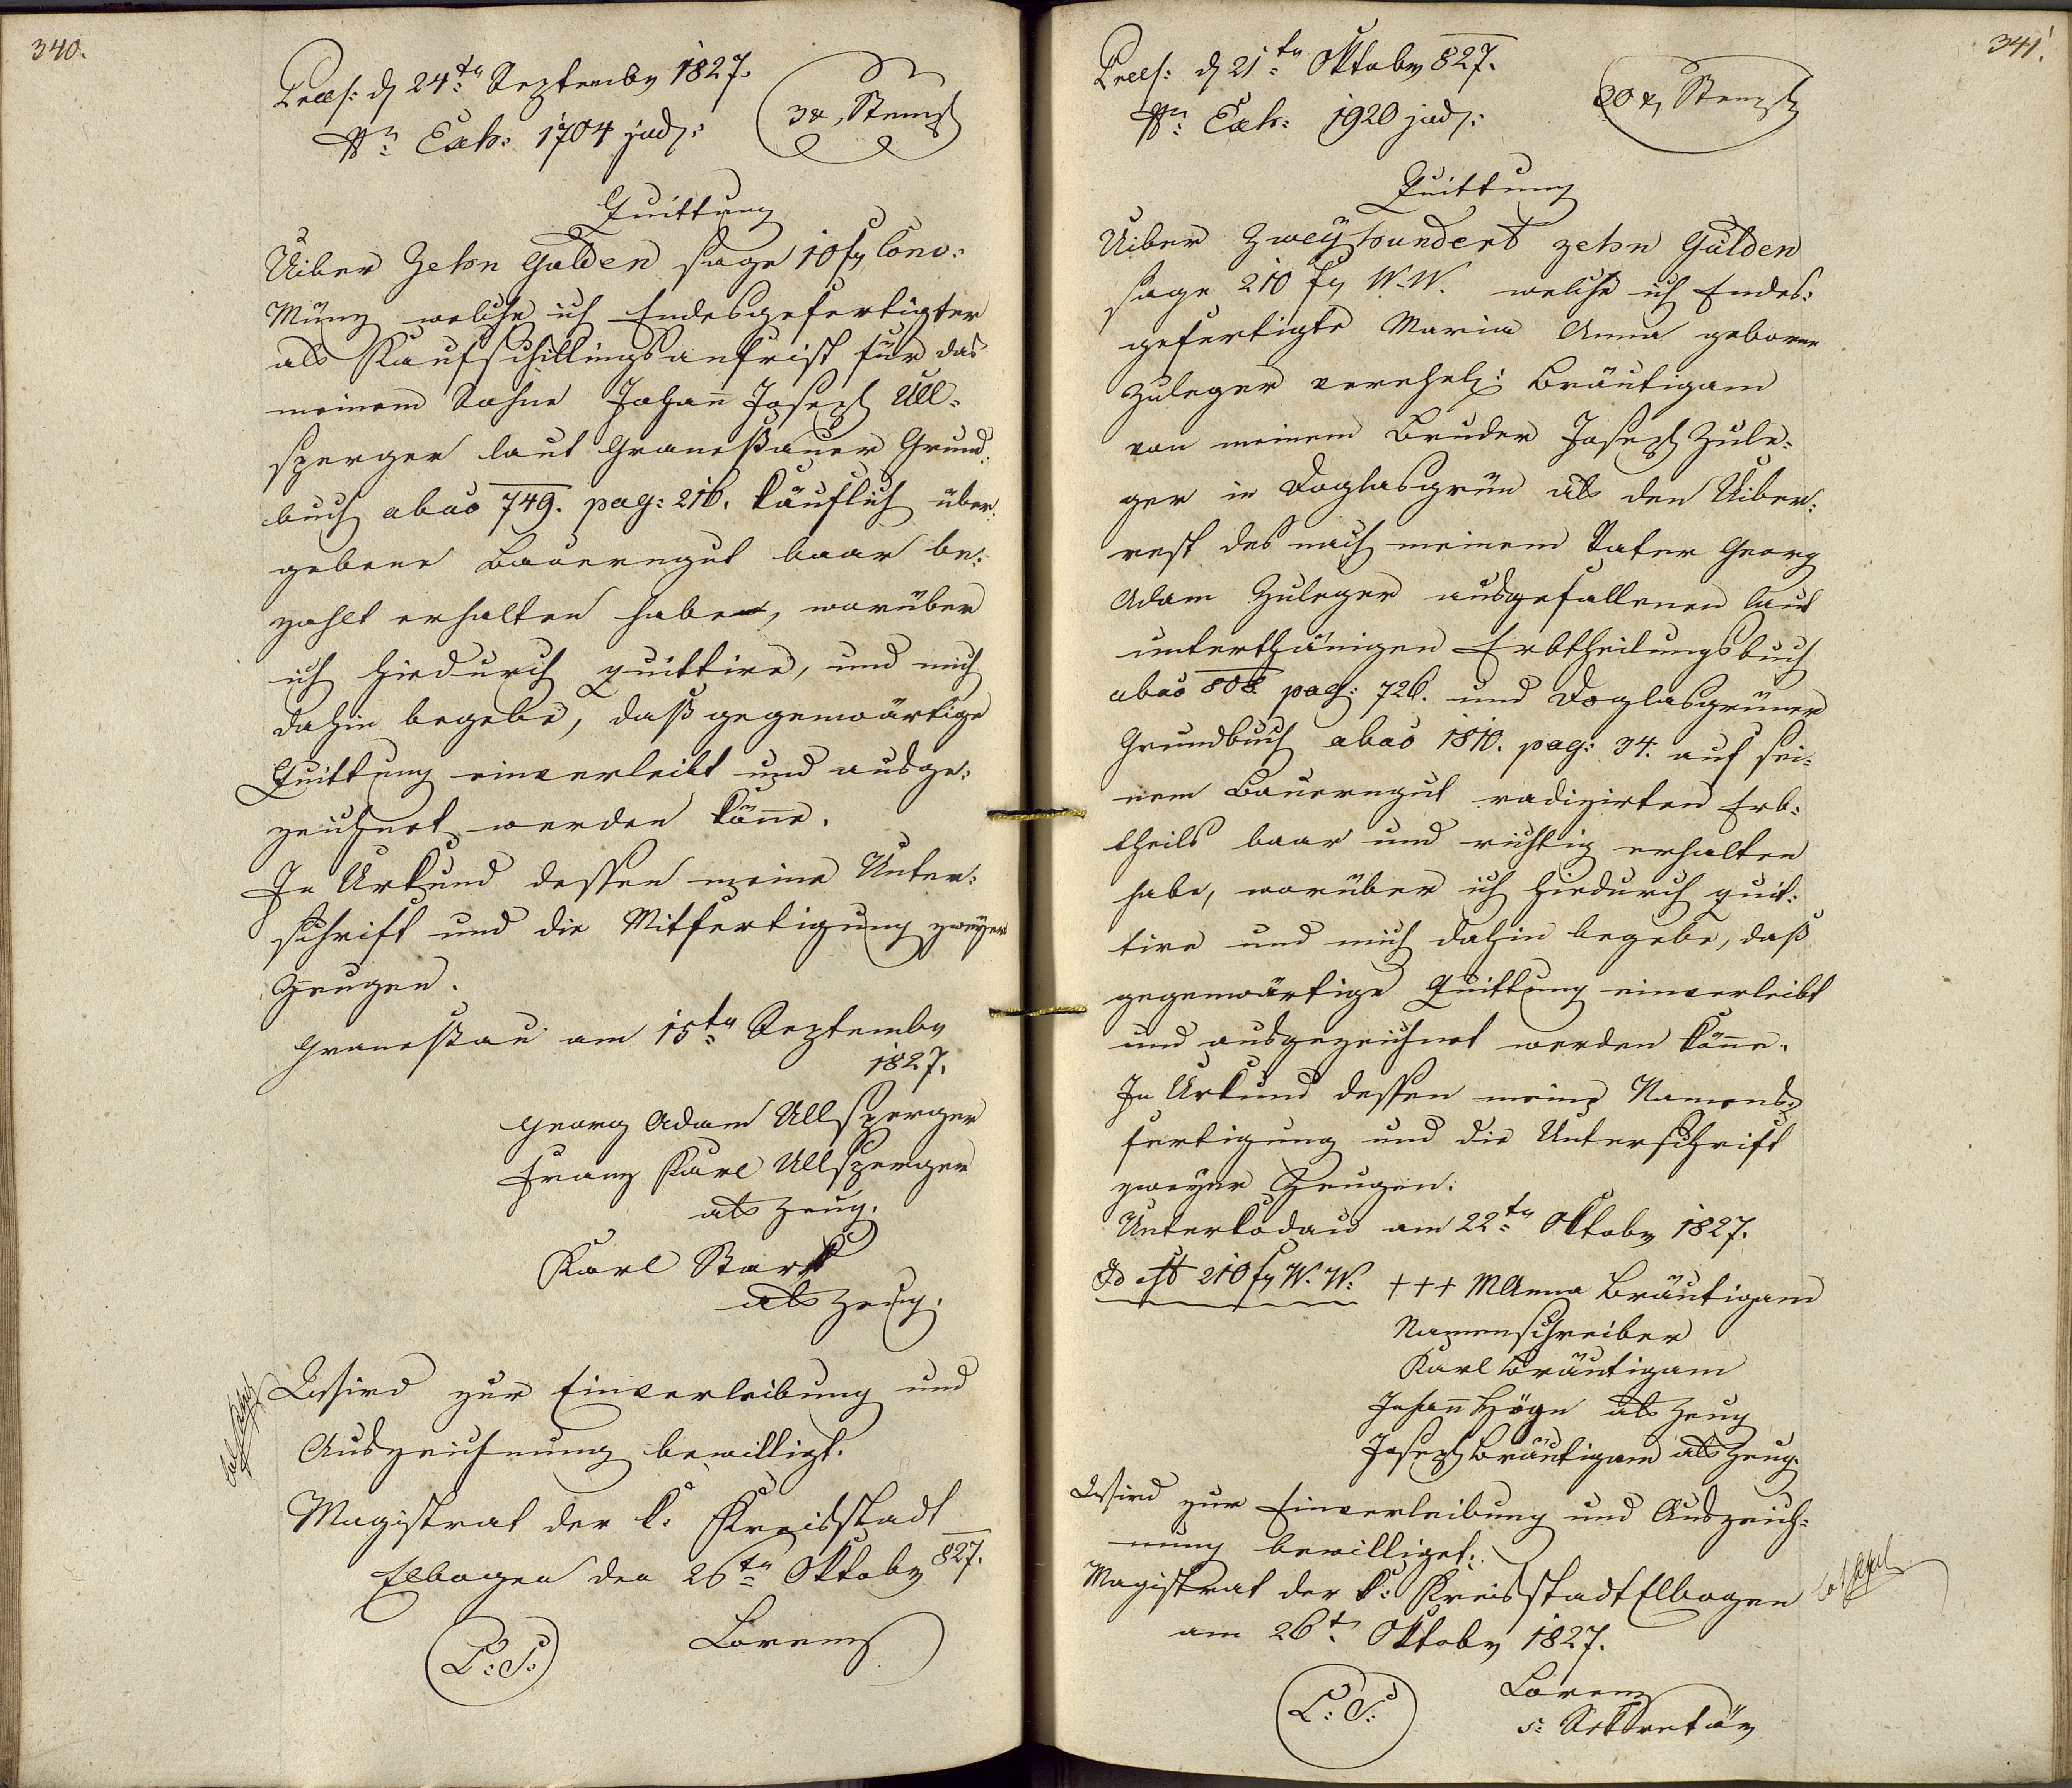 340.
Præs: d 24ten Septembr 1827.
Nr Exh: 1704 jud:
3 x Stempl
Quittung
Uiber Zehn Gulden sage 10 fl Conv:
Münz welche ich Endesgefertigter
als Kaufschillingsanfrist für das
meinem Sohne Johann Joseph Ull-
sperger laut Granessauer Grund-
buch abao 749. pag: 216. käuflich über-
gebene Bauerngut baar be-
zahlt erhalten habe, worüber
ich hiedurch quittire, und mich
dahin begebe, daß gegenwärtige
Quittung einverleibt und ausge-
zeichnet werden könne.
In Urkund dessen meine Unter-
schrift und die Mitfertigung zweyer
Zeugen.
Granessau am 15ten Septembr
1827.
Georg Adam Ullsperger
Franz Karl Ullsperger
als Zeug.
Karl Stark
als Zeug.
Wird zur Einverleibung und
Auszeichnung bewilligt.
Magistrat der k: Kreisstadt
Elbogen den 26ten Oktobr 827.
L: S:
Lorenz
341.
Præs: d 21ten Oktobr 827.
Nr Exh: 1920 jud:
20 x Stempl
Quittung
Uiber Zweyhundert zehn Gulden
sage 210 fl W. W. welche ich Endes-
gefertigte Maria Anna geborne
Zuleger verehel: Bräutigam
von meinem Bruder Joseph Zule-
ger in Doglasgrün als den Uiber-
rest des nach meinem Vater Georg
Adam Zuleger ausgefallenen laut
unterthänigen Erbtheilungsbuch
abao 808 pag: 726. und Doglasgrüner
Grundbuch abao 1810. pag: 34. auf sei-
nem Bauerngut radizirten Erb-
theils baar und richtig erhalten
habe, worüber ich hiedurch quit-
tire und mich dahin begebe, daß
gegenwärtige Quittung einverleibt
und ausgezeichnet werden könne.
In Urkund dessen meine Namens-
fertigung und die Unterschrift
zweyer Zeugen.
Unterkodau am 22ten Oktobr 1827.
Id est 210 fl W. W. +++ MAnna Bräutigam
Namenschreiber
Karl Bräutigam
Johann Högn als Zeug
Joseph Bräutigam als Zeug.
Wird zur Einverleibung und Auszeich-
nung bewilliget.
Magistrat der k: Kreisstadt Elbogen
am 26t Oktobr 1827.
L: S:
Lorenz
s: Sekretär